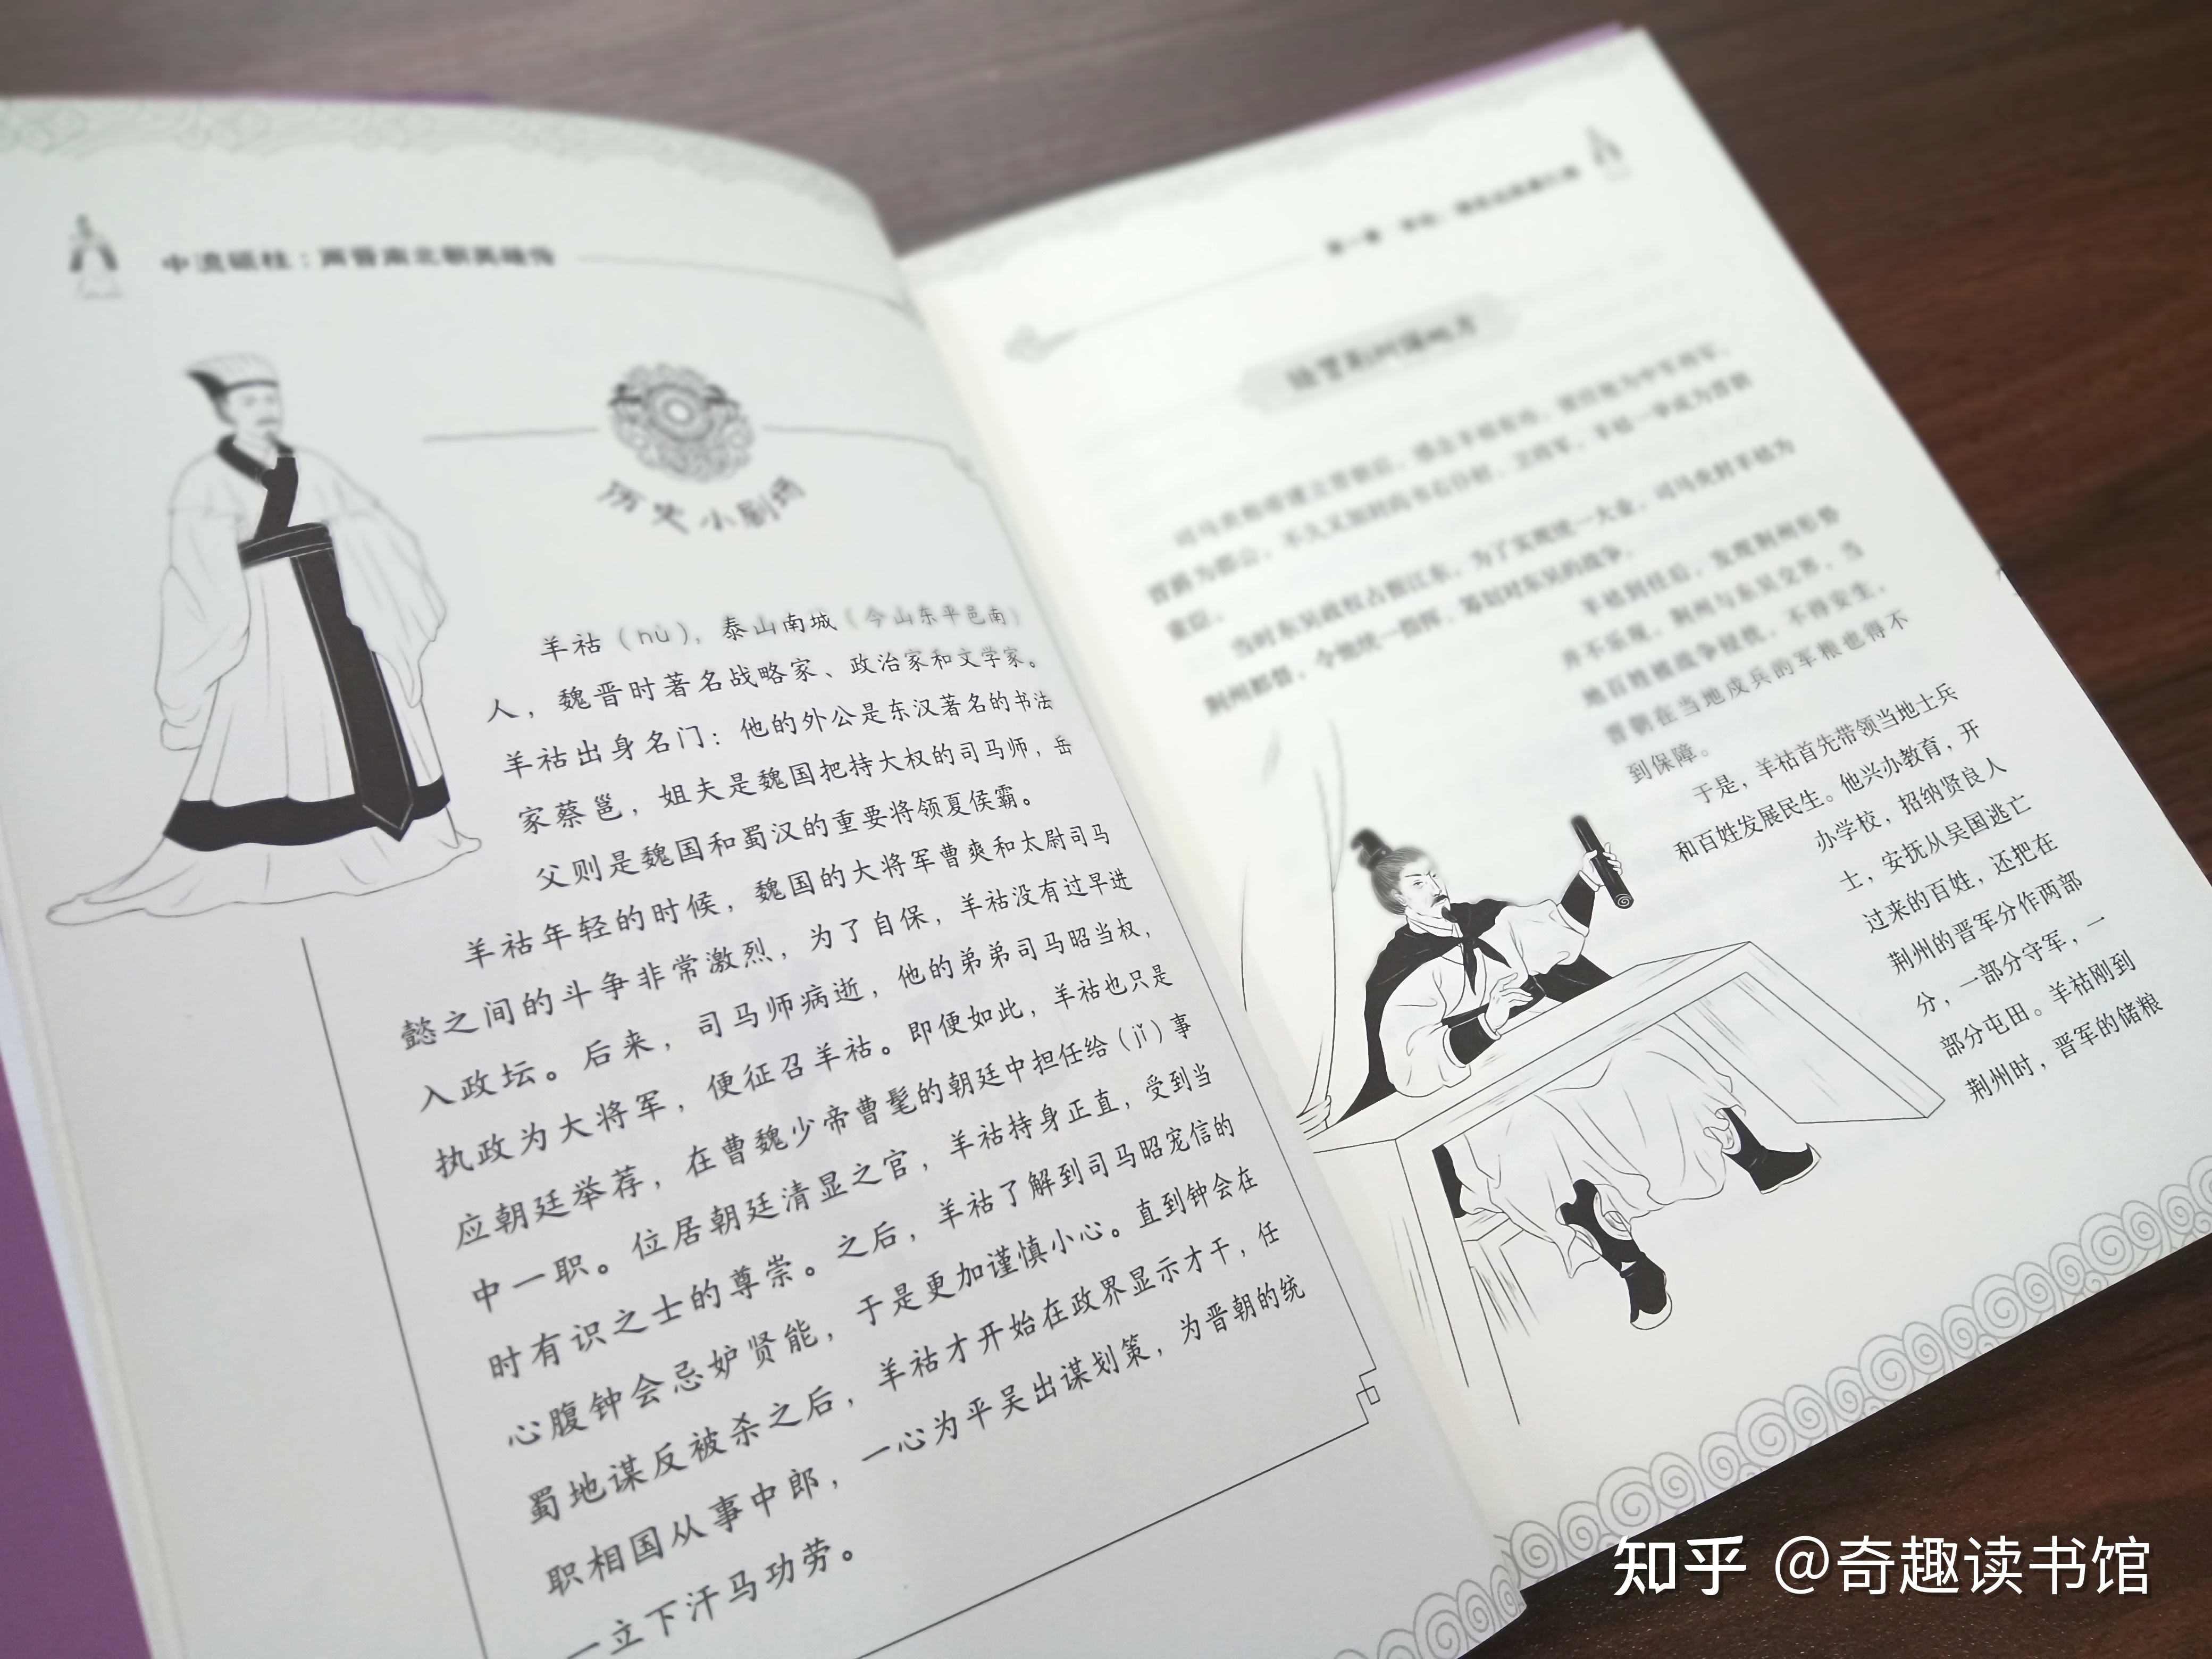 中流砥柱：两晋南北朝英雄传
历史小剧场
羊祜（hù），泰山南城（今山东平邑南）
人，魏晋时著名战略家、政治家和文学家。
羊祜出身名门：他的外公是东汉著名的书法
家蔡邕，姐夫是魏国把持大权的司马师，岳
父则是魏国和蜀汉的重要将领夏侯霸。
羊祜年轻的时候，魏国的大将军曹爽和太尉司马
懿之间的斗争非常激烈，为了自保，羊祜没有过早进
入政坛。后来，司马师病逝，他的弟弟司马昭当权，
执政为大将军，便征召羊祜。即便如此，羊祜也只是
应朝廷举荐，在曹魏少帝曹髦的朝廷中担任给（jǐ）事
中一职。位居朝廷清显之官，羊祜持身正直，受到当
时有识之士的尊崇。之后，羊祜了解到司马昭宠信的
心腹钟会忌妒贤能，于是更加谨慎小心。直到钟会在
蜀地谋反被杀之后，羊祜才开始在政界显示才干，任
职相国从事中郎，一心为平吴出谋划策，为晋朝的统
一立下汗马功劳。
司马炎称帝建立晋朝后，感念羊祜有功，
晋爵为郡公，不久又加封尚书右仆射、卫将军，羊祜一举成为晋朝
重臣。
当时东吴政权占据江东，为了实现统一大业，司马炎封羊祜为
荆州都督，令他统一指挥，筹划对东吴的战争。
羊祜到任后，发现荆州形势
并不乐观，荆州与东吴交界，当
地百姓被战争侵扰，不得安生，
晋朝在当地戍兵的军粮也得不
到保障。
于是，羊祜首先带领当地士兵
和百姓发展民生。他兴办教育，开
办学校，招纳贤良人
士，安抚从吴国逃亡
过来的百姓，还把在
荆州的晋军分作两部
分，一部分守军，一
部分屯田。羊祜刚到
荆州时，晋军的储粮
知乎 @奇趣读书馆